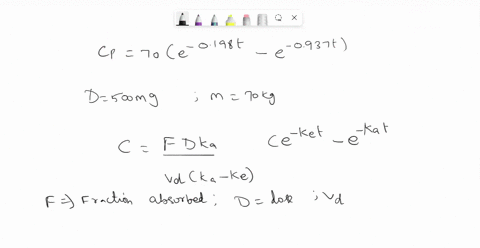 Cp = 70 (e^-0.198t - e^-0.937t)
D=500mg ; m = 70kg
C = F D ka / Vd (ka - ke) (e^-ket - e^-kat
F => Fraction absorbed ; D = dose ; Vd